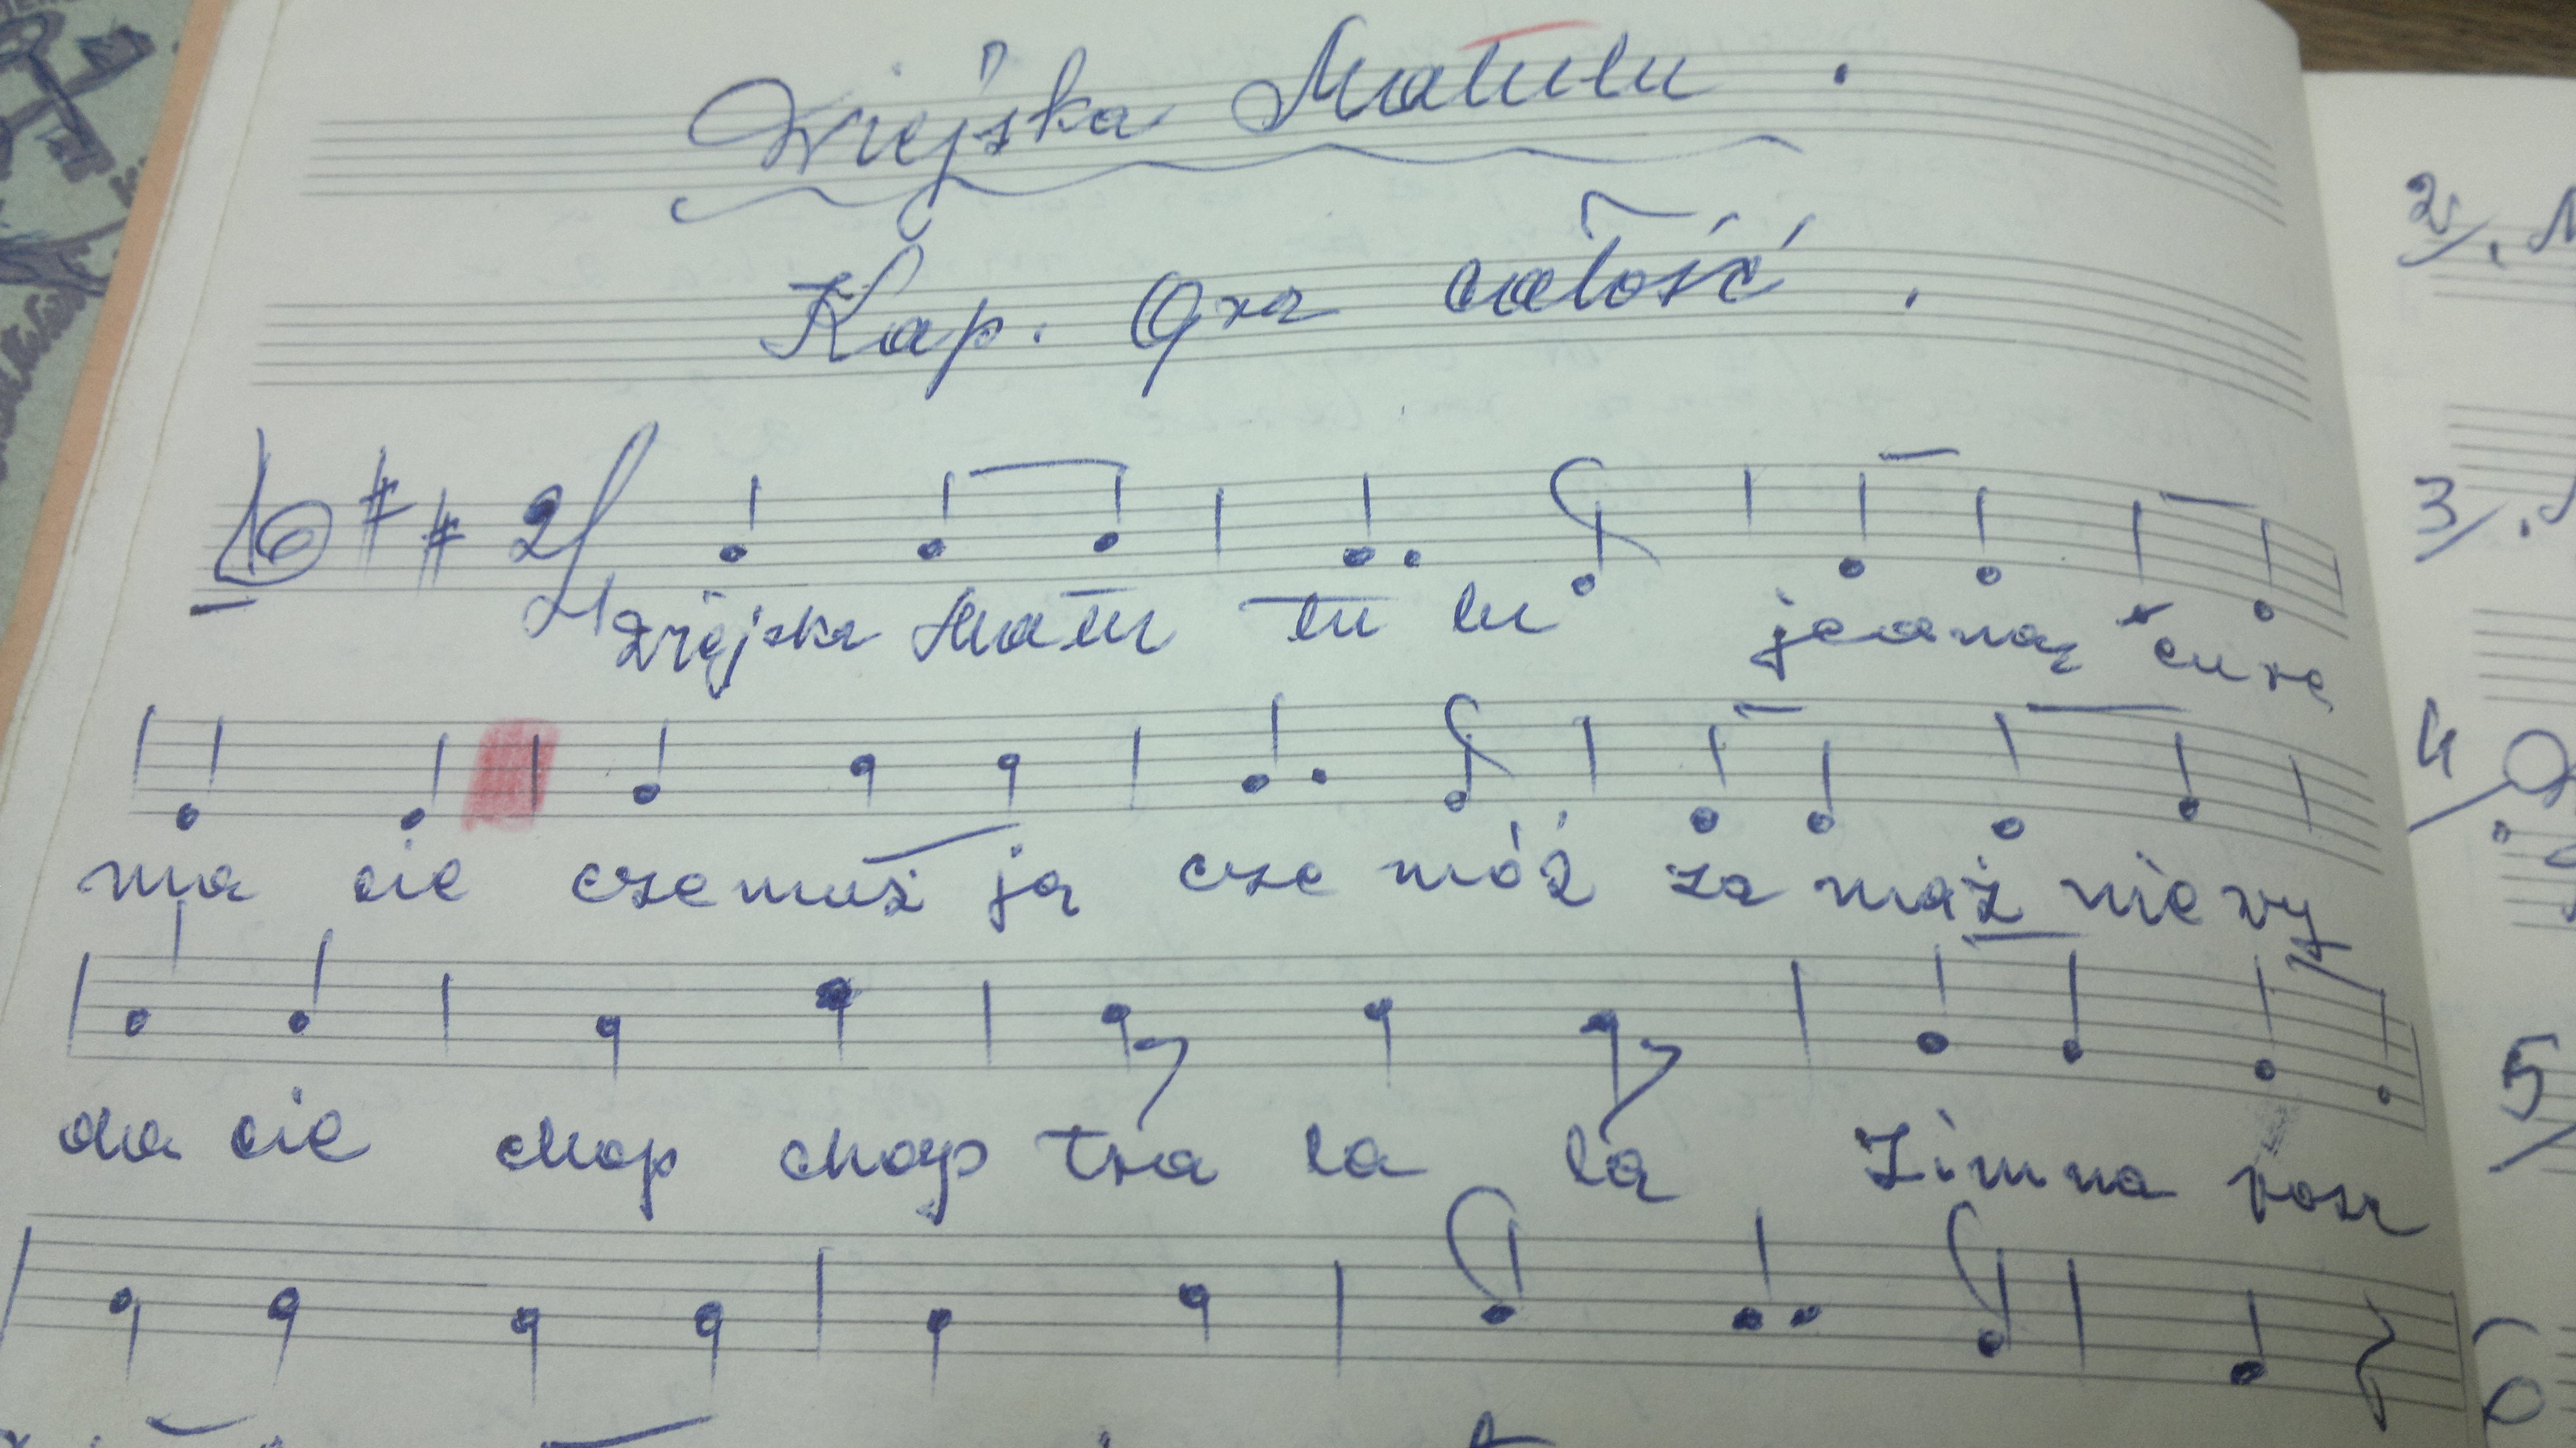 Wiejska Matulu.
Kap. Gra całość.
2/4
Wiejska Matu tu lu jedną cure
ma cie czemuż ją cze móż za maż nie wy
da cie chop chop tra la la Zimna rosa
2/.
3/.
4
5/
6